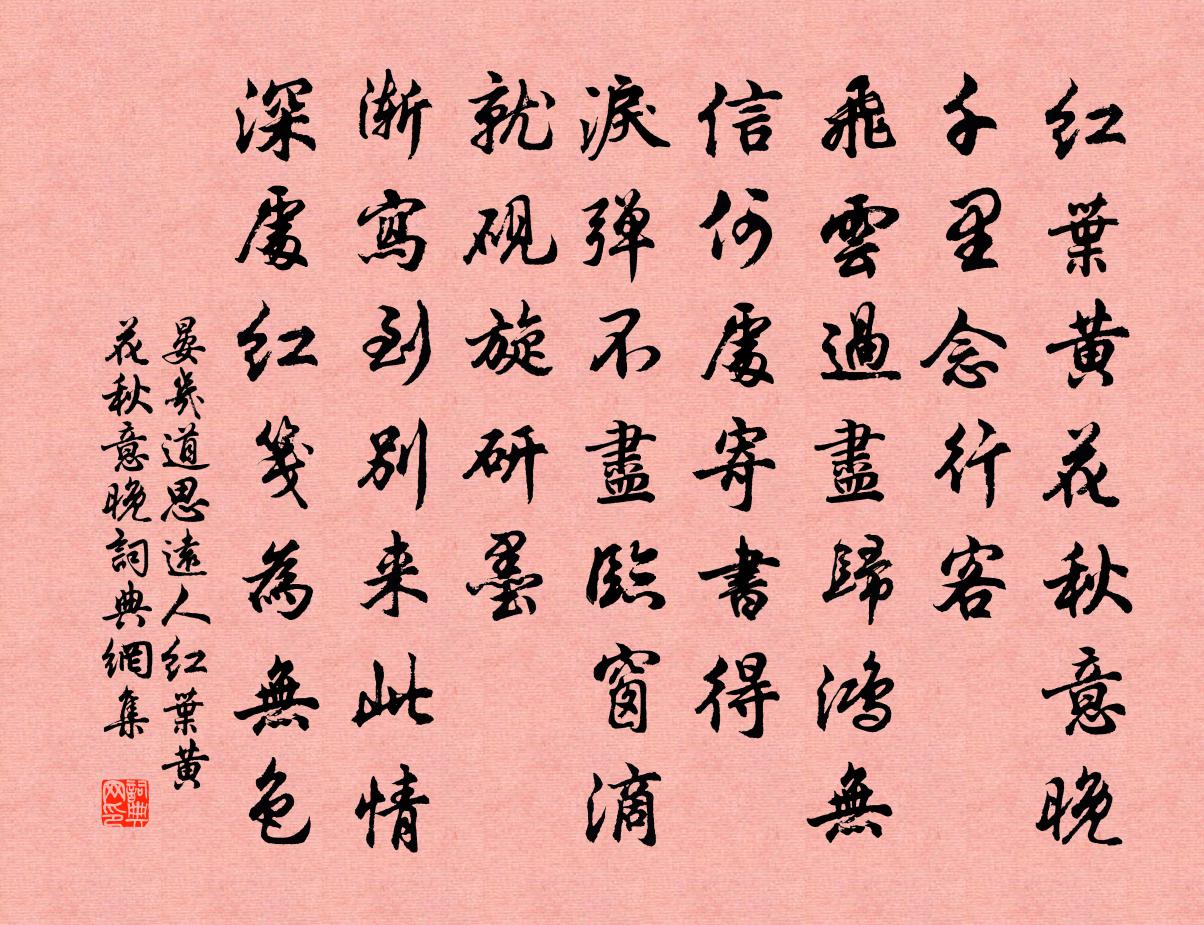 紅葉黃花秋意晚
千里念行客
飛雲過盡歸鴻無
信何處寄書得
淚彈不盡臨窗滴
就硯旋研墨
漸寫到別来此情
深處紅箋為無色
晏幾道思遠人紅葉黃
花秋意晚詞典網集
詞典
网印